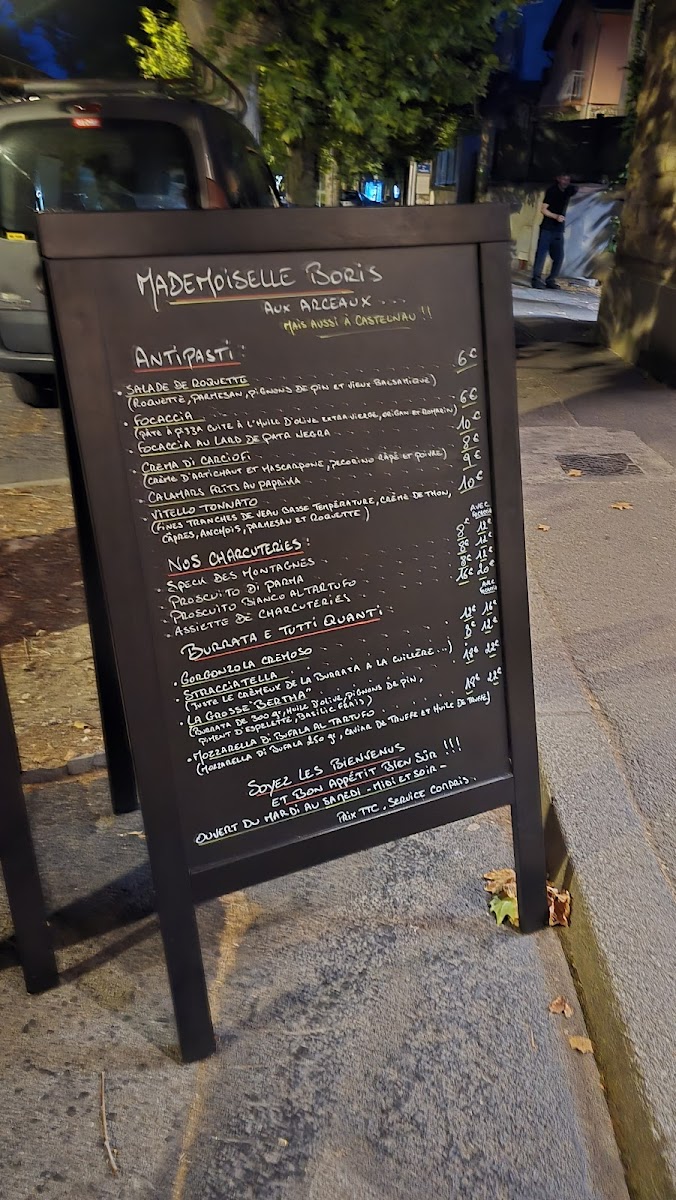 MADEMOISELLE BORIS
AUX ARCEAUX ...
MAIS AUSSI À CASTELNAU !!
ANTIPASTI :
• SALADE DE ROQUETTE 6€
(ROQUETTE, PARMESAN, PIGNONS DE PIN ET VIEUX BALSAMIQUE)
• FOCACCIA 6€
(PÂTE À PIZZA CUITE À L'HUILE D'OLIVE EXTRA VIERGE, ORIGAN ET ROMARIN)
• FOCACCIA AU LARD DE PATA NEGRA 10€
• CREMA DI CARCIOFI 8€
(CRÈME D'ARTICHAUT ET MASCARPONE, PECORINO RÂPÉ ET POIVRE)
• CALAMARS FRITS AU PAPRIKA 9€
• VITELLO TONNATO 10€
(FINES TRANCHES DE VEAU BASSE TEMPÉRATURE, CRÈME DE THON,
CÂPRES, ANCHOIS, PARMESAN ET ROQUETTE)
NOS CHARCUTERIES : AVEC
• SPECK DES MONTAGNES 8€ 12€
• PROSCUITO DI PARMA 8€ 12€
• PROSCUITO BIANCO AL TARTUFO 8€ 12€
• ASSIETTE DE CHARCUTERIES 16€ 20€
BURRATA E TUTTI QUANTI : AVEC
• GORGONZOLA CREMOSO 12€ 16€
• STRACCIATELLA 8€ 12€
(JUSTE LE CRÉMEUX DE LA BURRATA À LA CUILLÈRE...)
• LA GROSSE "BERTHA" 18€ 22€
(BURRATA DE 300 gr, HUILE D'OLIVE, PIGNONS DE PIN,
PIMENT D'ESPELETTE, BASILIC FRAIS)
• MOZZARELLA DI BUFALA AL TARTUFO 18€ 22€
(MOZZARELLA DI BUFALA 250 gr, CAVIAR DE TRUFFE ET HUILE DE TRUFFE)
SOYEZ LES BIENVENUS
ET BON APPÉTIT BIEN SÛR !!!
OUVERT DU MARDI AU SAMEDI - MIDI ET SOIR -
PRIX TTC, SERVICE COMPRIS.